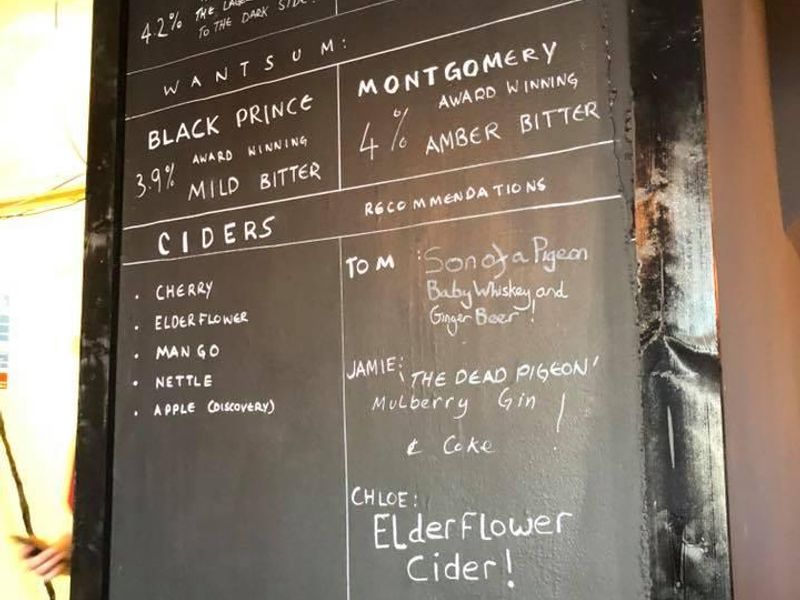 4.2% THE
TO THE DARK SIDE!
WANTSUM:
BLACK PRINCE
3.9% AWARD WINNING
MILD BITTER
MONTGOMERY
4% AWARD WINNING
AMBER BITTER
CIDERS
• CHERRY
• ELDERFLOWER
• MANGO
• NETTLE
• APPLE (DISCOVERY)
RECOMMENDATIONS
TOM : Son of a Pigeon
Baby Whiskey and
Ginger Beer!
JAMIE: 'THE DEAD PIGEON'
Mulberry Gin
& Coke!
CHLOE:
ElderFlower
Cider!